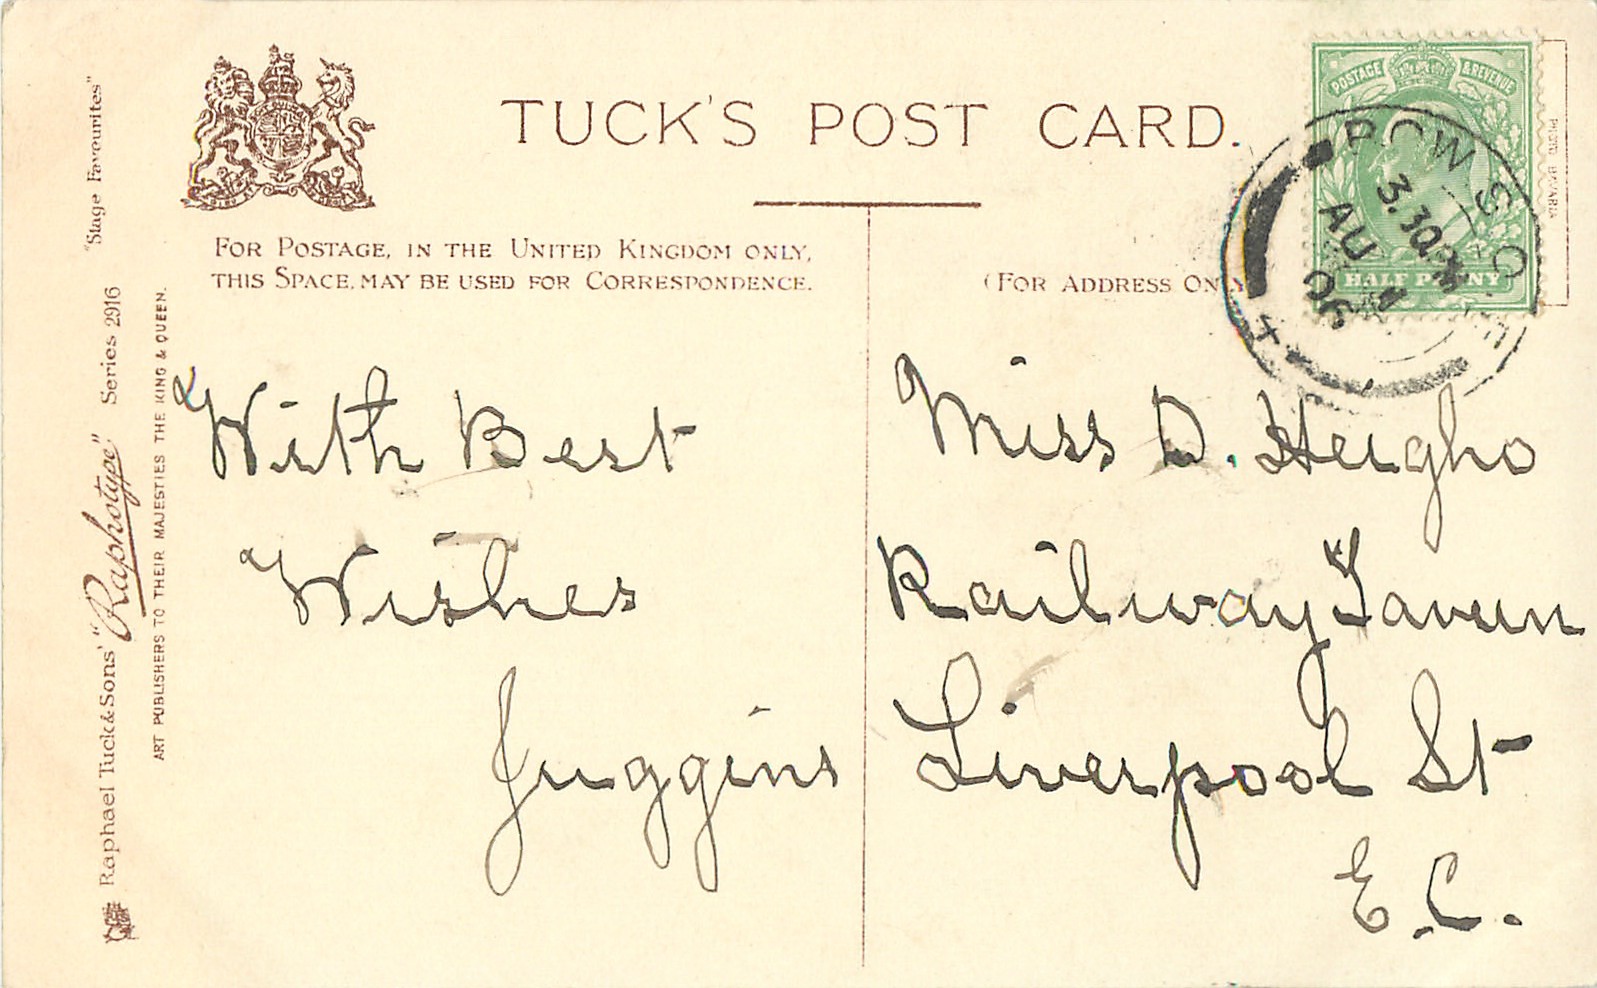 TUCK'S POST CARD.
POSTAGE & REVENUE
HALF PENNY
3.30PM
AU
06
FOR POSTAGE, IN THE UNITED KINGDOM ONLY,
THIS SPACE, MAY BE USED FOR CORRESPONDENCE.
(FOR ADDRESS ONLY
With Best
Wishes
Juggins
Miss D. Heigho
Railway Tavern
Liverpool St
E.C.
Raphael Tuck & Sons' "Raphotype" Series 2916 "Stage Favourites"
ART PUBLISHERS TO THEIR MAJESTIES THE KING & QUEEN.
BAVARIA